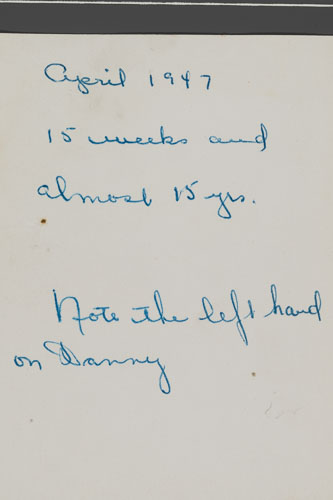 April 1947
15 weeks and
almost 15 yrs.
Note the left hand
on Danny